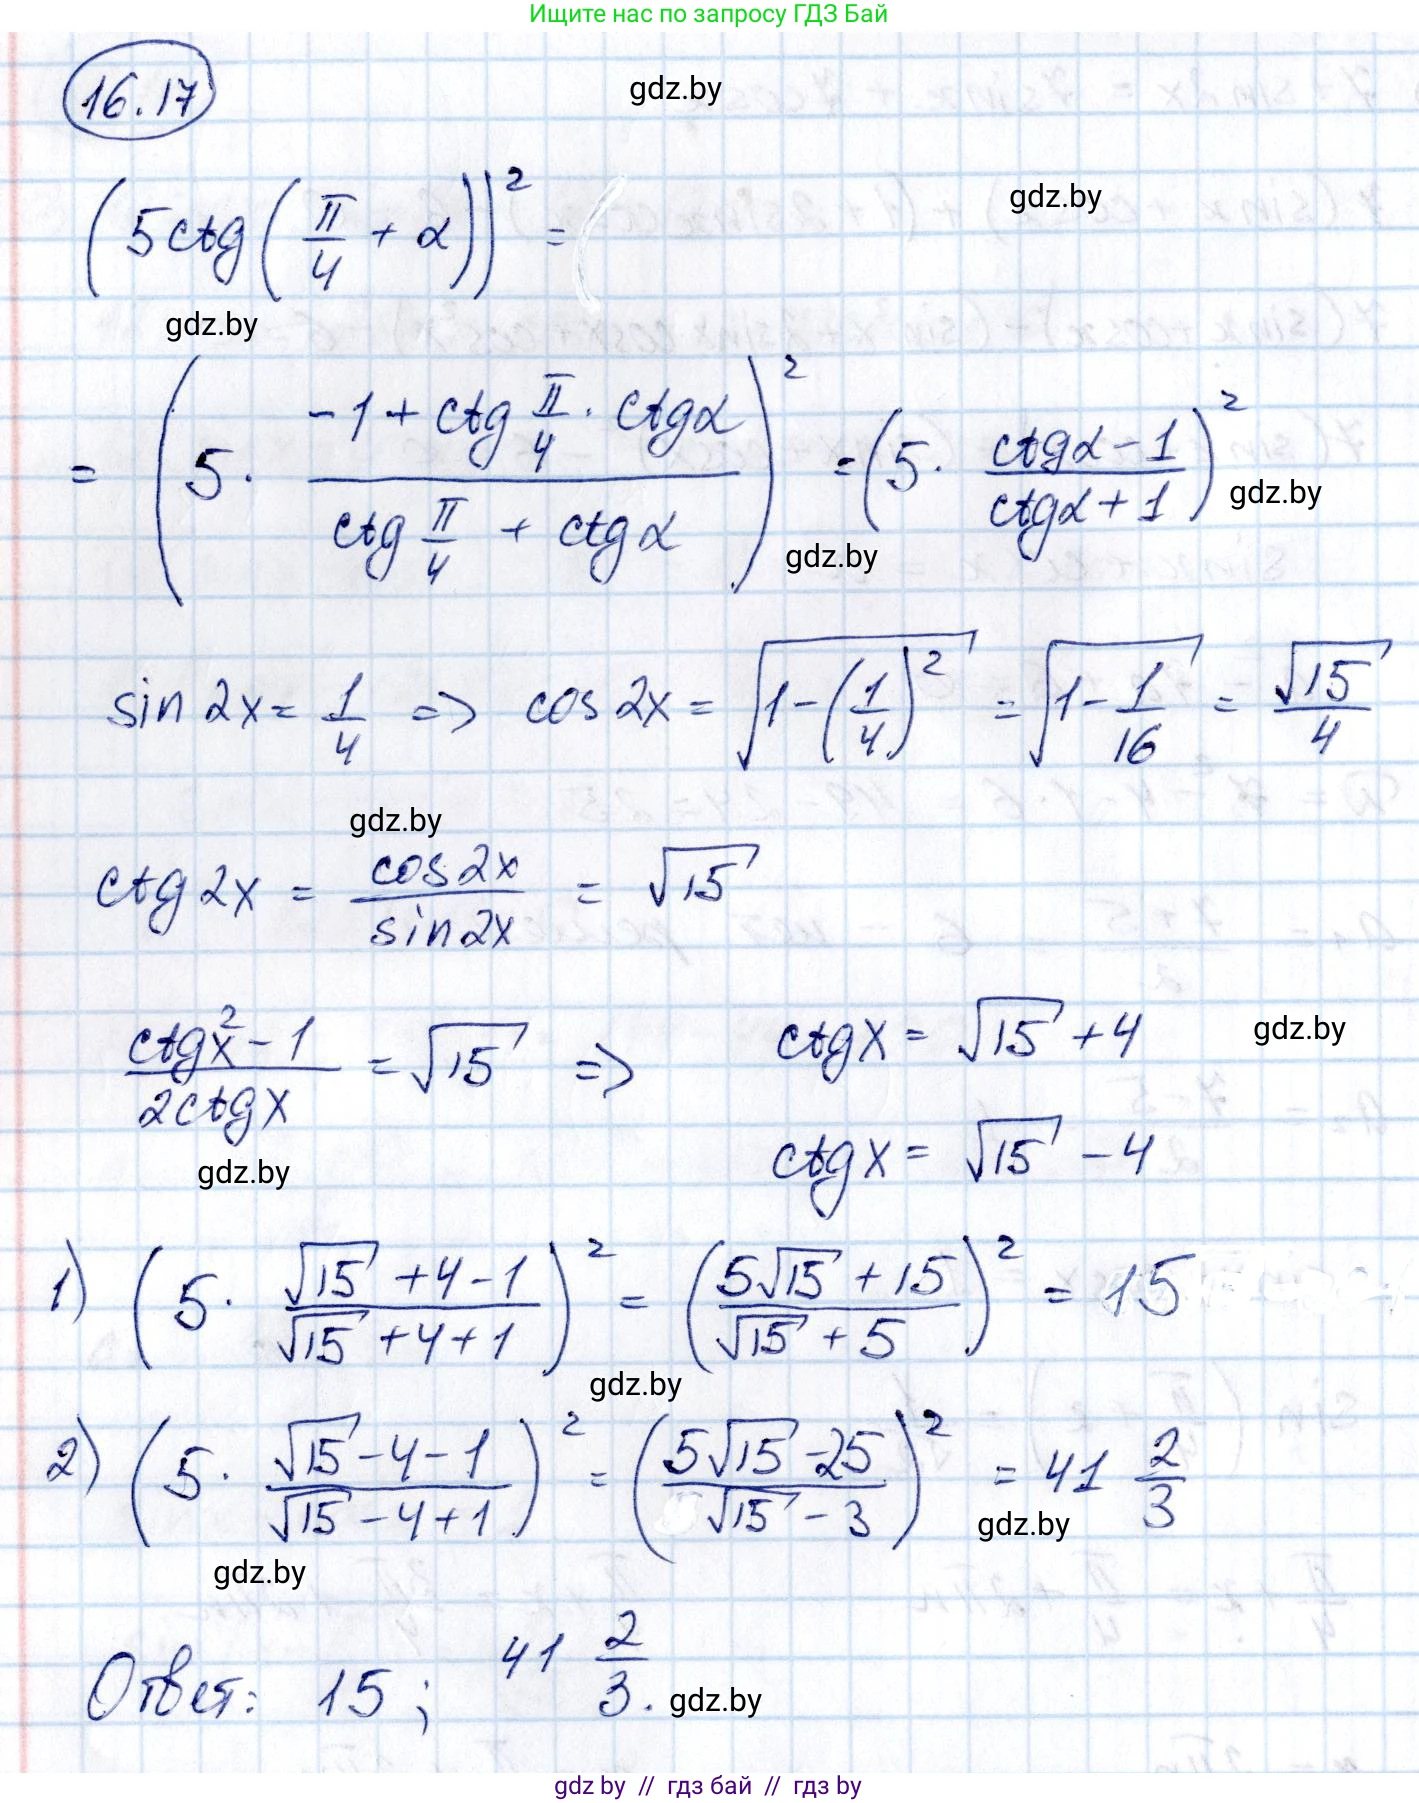 Ищите нас по запросу ГДЗ Бай
16.17
gdz.by
(5ctg(π/4 + α))² =
gdz.by
gdz.by
= (5 · (-1 + ctg π/4 · ctgα)/(ctg π/4 + ctgα))² = (5 · (ctgα - 1)/(ctgα + 1))²
gdz.by
gdz.by
sin 2x = 1/4 => cos 2x = √(1 - (1/4)²) = √(1 - 1/16) = √15/4
gdz.by
ctg 2x = cos 2x/sin 2x = √15
(ctg²x - 1)/(2ctgx) = √15 => ctgx = √15 + 4
gdz.by
ctgx = √15 - 4
gdz.by
1) (5 · (√15 + 4 - 1)/(√15 + 4 + 1))² = ((5√15 + 15)/(√15 + 5))² = 15
gdz.by
2) (5 · (√15 - 4 - 1)/(√15 - 4 + 1))² = ((5√15 - 25)/(√15 - 3))² = 41 2/3
gdz.by
gdz.by
Ответ: 15; 41 2/3.
gdz.by
gdz by // гдз бай // гдз by